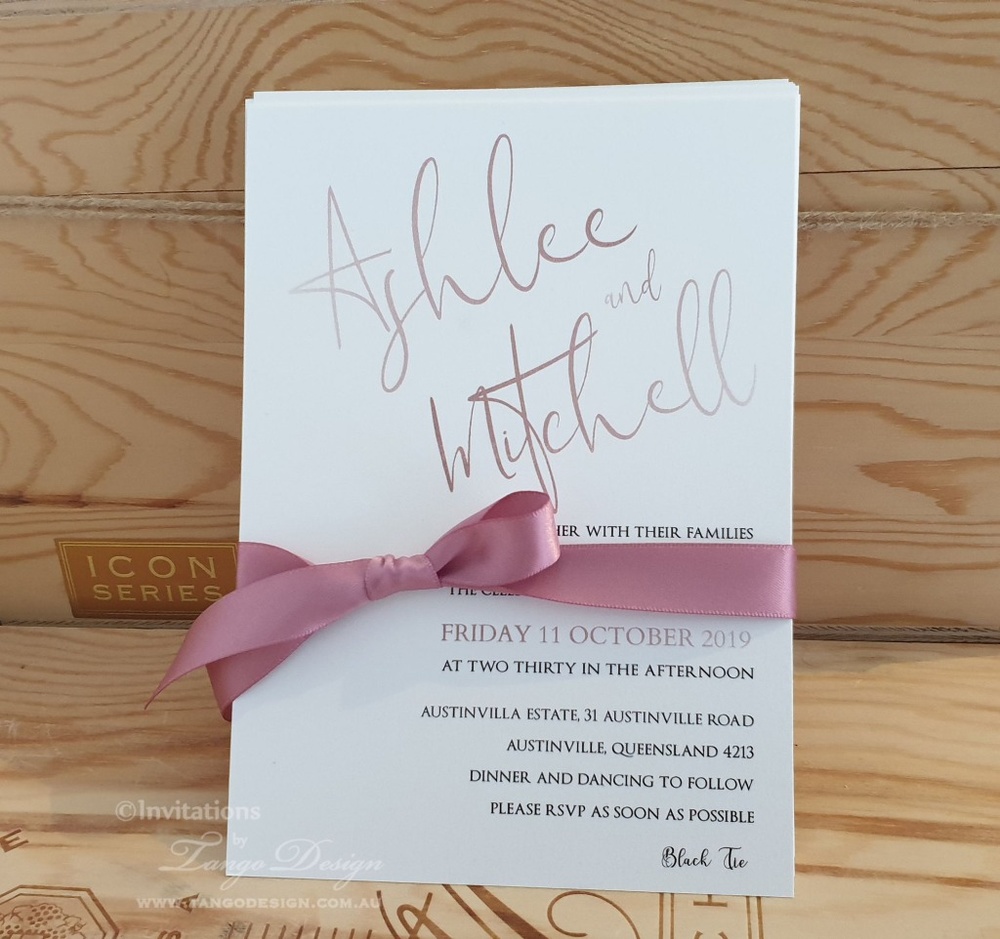 Ashlee
and
Mitchell
HER WITH THEIR FAMILIES
FRIDAY 11 OCTOBER 2019
AT TWO THIRTY IN THE AFTERNOON
AUSTINVILLA ESTATE, 31 AUSTINVILLE ROAD
AUSTINVILLE, QUEENSLAND 4213
DINNER AND DANCING TO FOLLOW
PLEASE RSVP AS SOON AS POSSIBLE
Black Tie
ICON
SERIES
©Invitations
by
Tango Design
WWW.TANGODESIGN.COM.AU